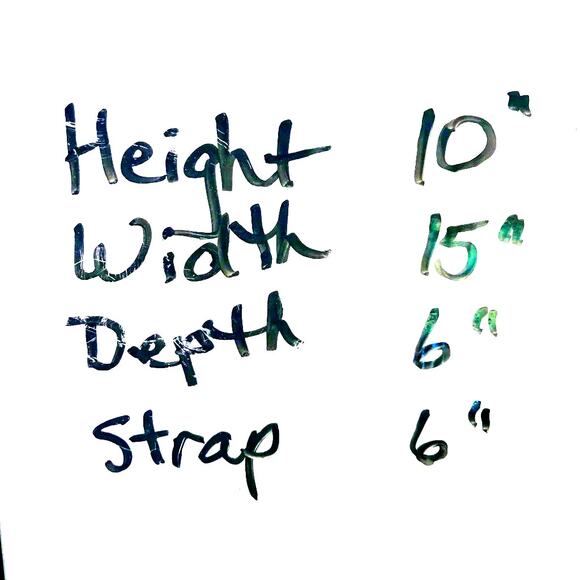 Height 10"
Width 15"
Depth 6"
Strap 6"